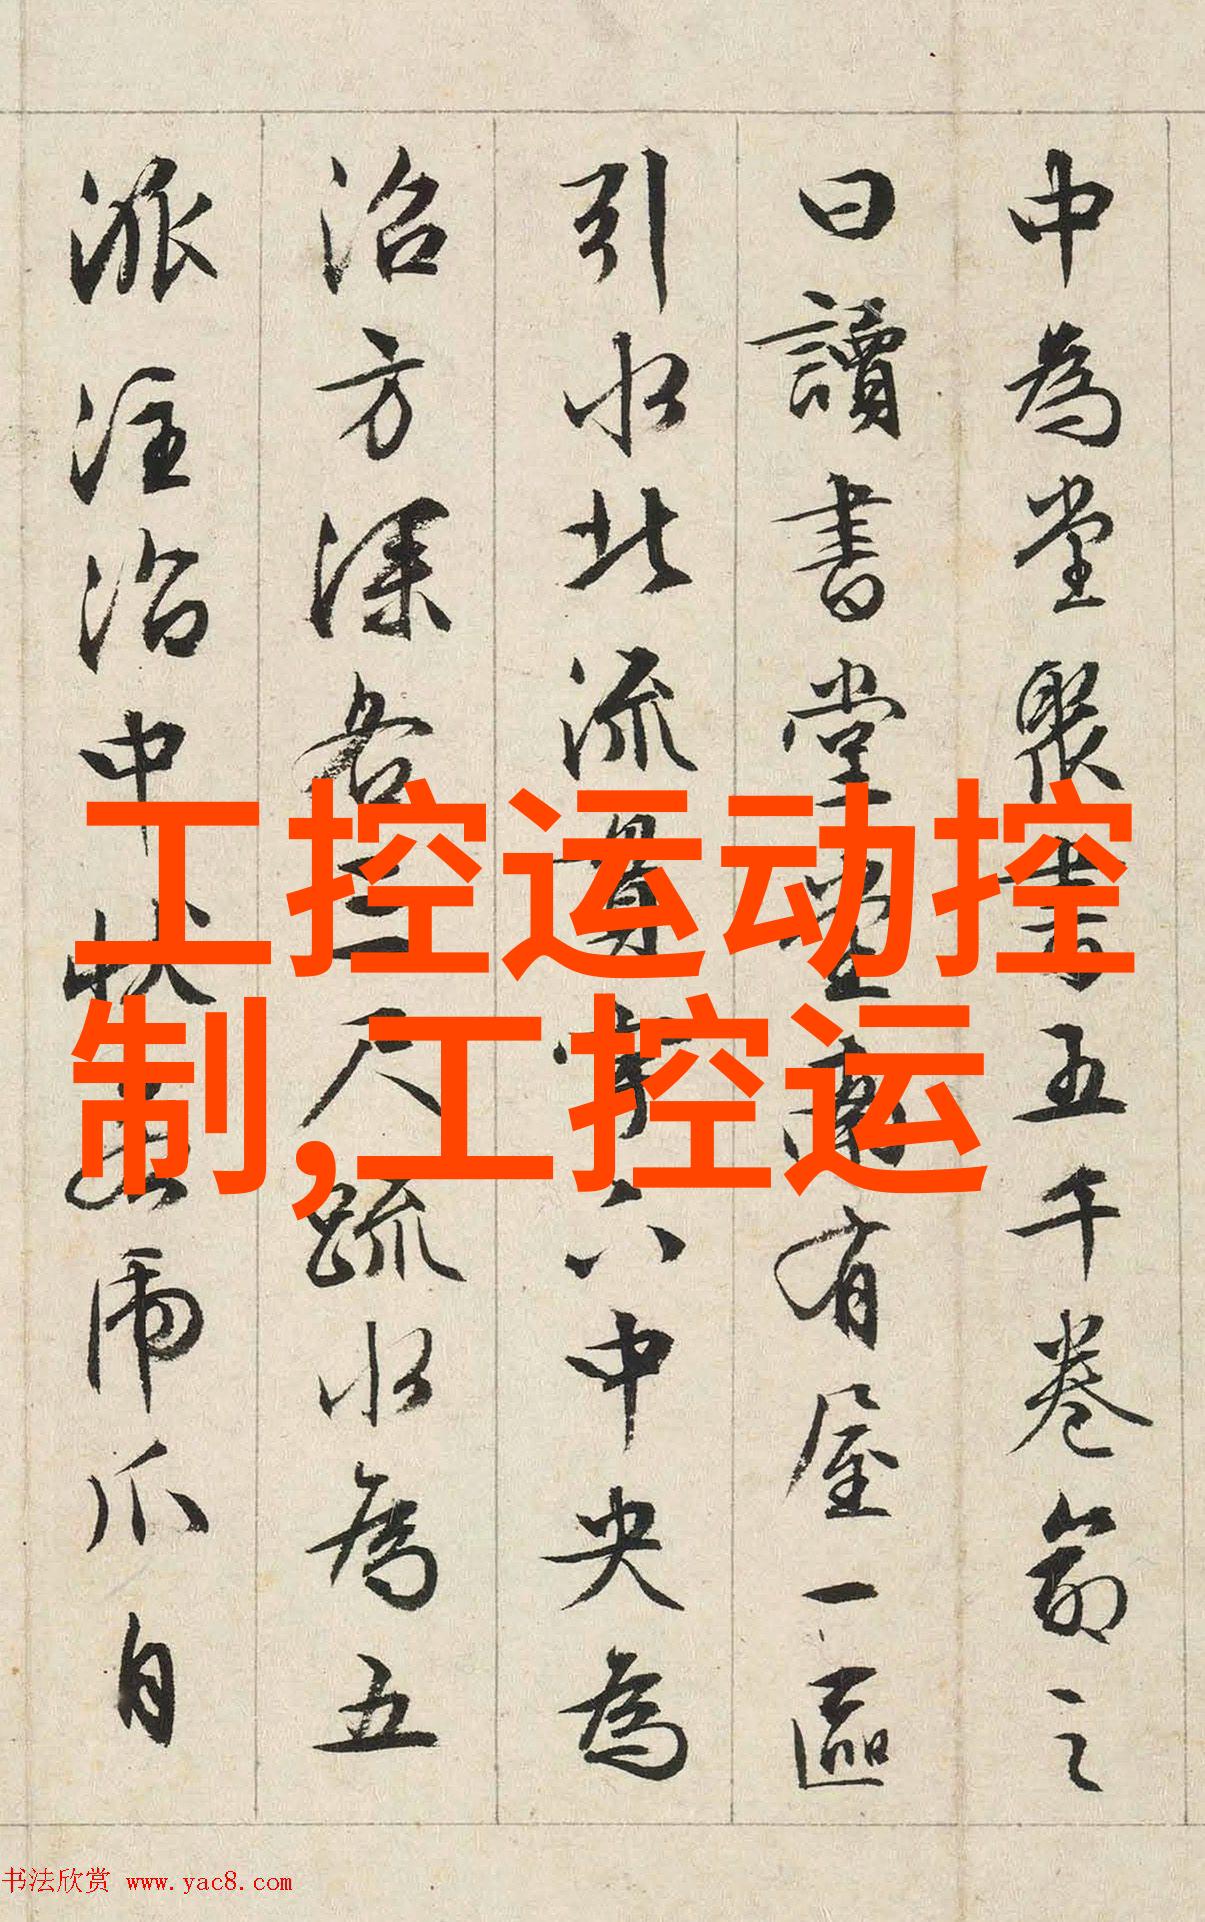 中為堂聚書五千卷命之
曰讀書堂堂南有屋一區
引水北流貫宇下中央為
沼方深各三尺疏水為五
派注沼中狀若虎爪自
工控运动控
制,工控运
书法欣赏 www.yac8.com